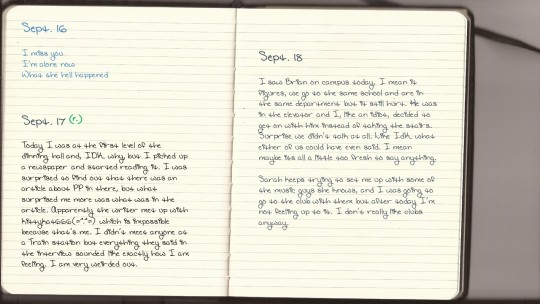 Sept. 16
I miss you.
I'm alone now
What the hell happened
Sept. 17 (r.)
Today I was at the first level of the
dinning hall and, IDK, why but I picked up
a newspaper and started reading it. I was
surprised to find out that there was an
article about PP in there, but what
surprised me more was what was in the
article. Apparently the writer met up with
which is impossible
because that's me. I didn't meet anyone at
a Train station but everything they said in
the interview sounded like exactly how I am
feeling. I am very weirded out.
Sept. 18
I saw Brian on campus today. I mean it
figures, we go to the same school and are in
the same department but it still hurt. He was
in the elevator and I, like an idiot, decided to
get on with him instead of taking the stairs.
Surprise we didn't talk at all. Like IDK what
either of us could have even said. I mean
maybe its all a little too fresh to say anything.
Sarah keeps trying to set me up with some of
the music guys she knows, and I was going to
go to the club with them but after today I'm
not feeling up to it. I don't really like clubs
anyway.